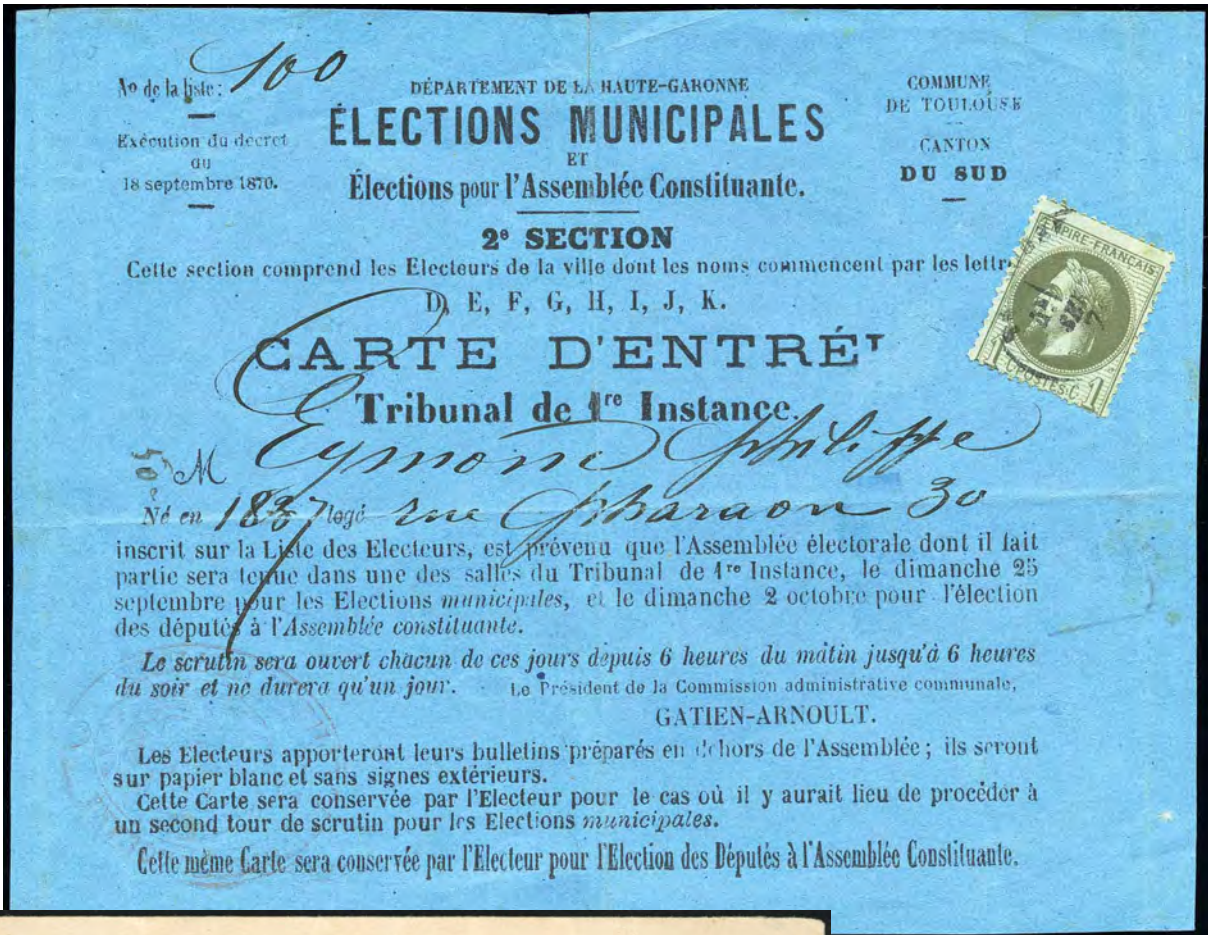 No de la liste : 100
Exécution du décret
du
18 septembre 1870.
DÉPARTEMENT DE LA HAUTE-GARONNE
ÉLECTIONS MUNICIPALES
ET
Élections pour l'Assemblée Constituante.
COMMUNE
DE TOULOUSE
CANTON
DU SUD
2e SECTION
Cette section comprend les Electeurs de la ville dont les noms commencent par les lettr
D, E, F, G, H, I, J, K.
CARTE D'ENTRÉ
Tribunal de 1re Instance.
EMPIRE FRANÇAIS
1 C. POSTES C. 1
M Eymond Philippe
Né en 1837 logé rue Pharaon 30
inscrit sur la Liste des Electeurs, est prévenu que l'Assemblée électorale dont il fait
partie sera tenue dans une des salles du Tribunal de 1re Instance, le dimanche 25
septembre pour les Elections municipales, et le dimanche 2 octobre pour l'élection
des députés à l'Assemblée constituante.
Le scrutin sera ouvert chacun de ces jours depuis 6 heures du matin jusqu'à 6 heures
du soir et ne durera qu'un jour. Le Président de la Commission administrative communale,
GATIEN-ARNOULT.
Les Electeurs apporteront leurs bulletins préparés en dehors de l'Assemblée ; ils seront
sur papier blanc et sans signes extérieurs.
Cette Carte sera conservée par l'Electeur pour le cas où il y aurait lieu de procéder à
un second tour de scrutin pour les Elections municipales.
Cette même Carte sera conservée par l'Electeur pour l'Election des Députés à l'Assemblée Constituante.